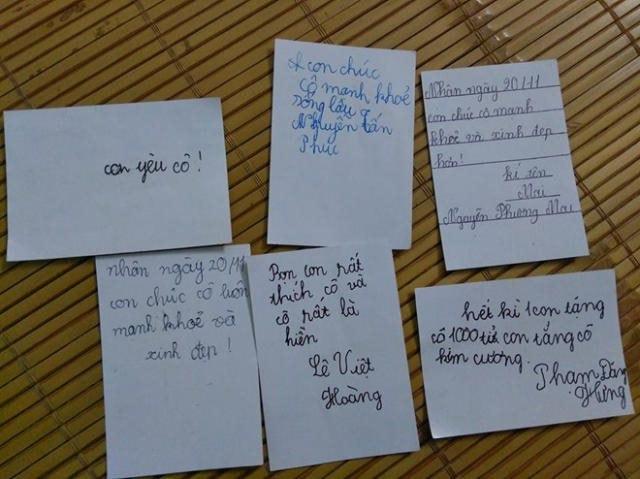 con yêu cô !
con chúc
Cô mạnh khoẻ
sống lâu
Nguyễn Tấn
Phúc
Nhân ngày 20/11
con chúc cô mạnh
khoẻ và xinh đẹp
hơn!
kí tên
Mai
Nguyễn Phương Mai
nhân ngày 20/11
con chúc cô luôn
mạnh khoẻ và
xinh đẹp !
Bọn con rất
thích cô và
cô rất là
hiền
Lê Việt
Hoàng
hết kì 1 con tặng
cô 1000 tỉ con tặng cô
kim cương.
Phạm Đăng
Hưng